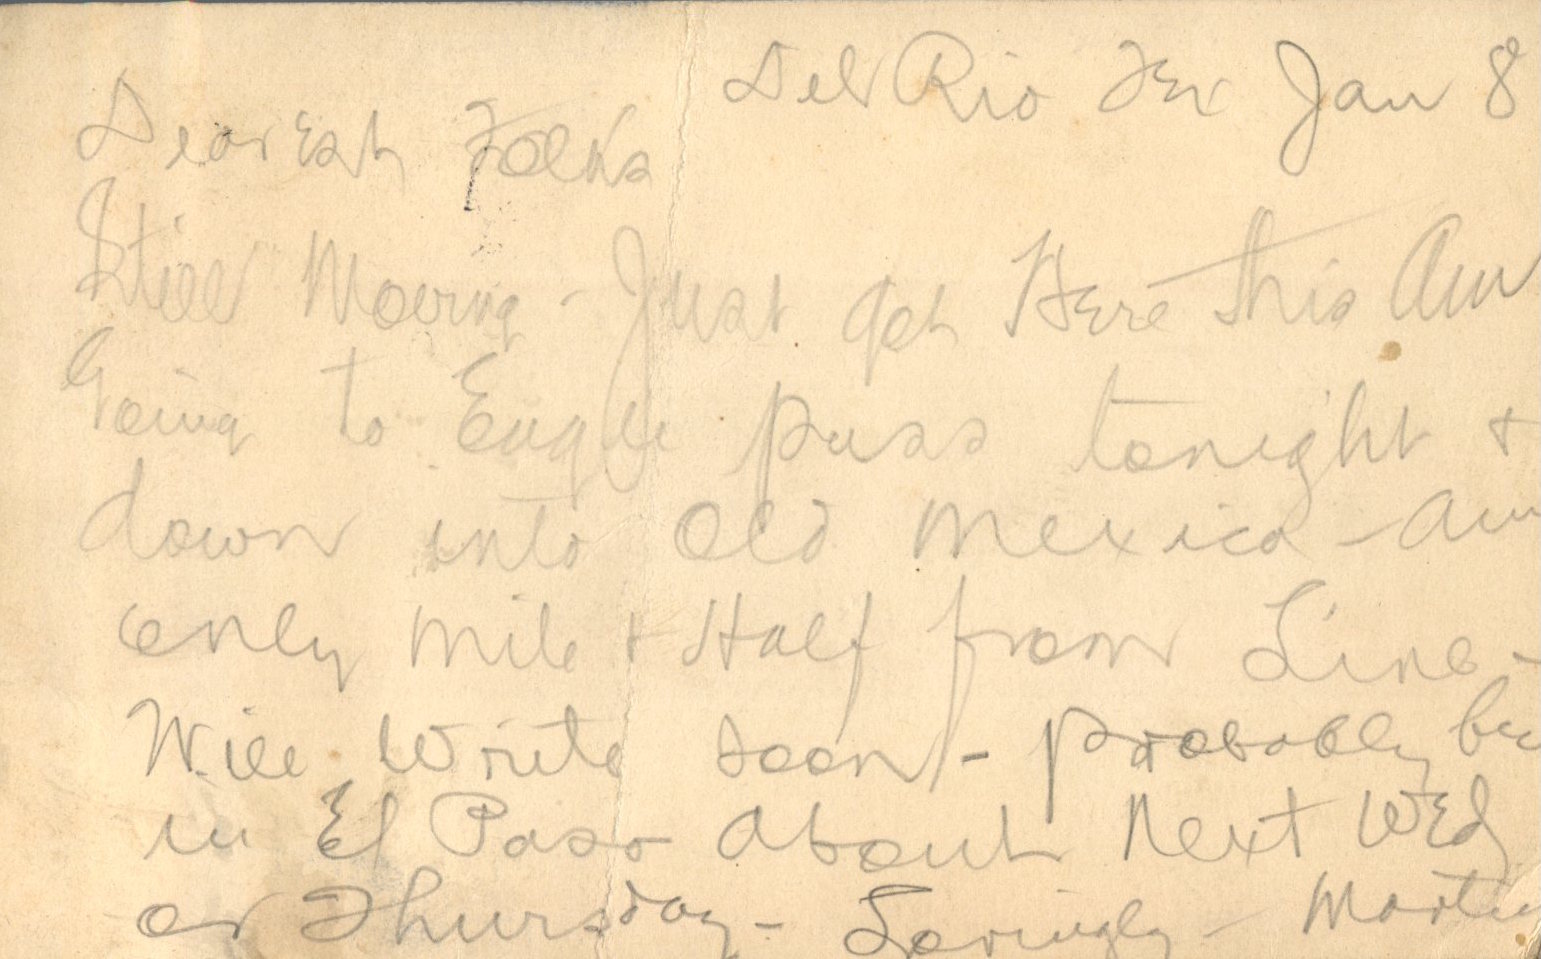 Del Rio Tex Jan 8
Dearest Folks
Still Moving - Just got Here this Am
Going to Eagle pass tonight +
down into Old Mexico - am
only mile + Half from Line -
Will Write soon - probably be
in El Paso About Next Wed
or Thursday - Lovingly - Martin